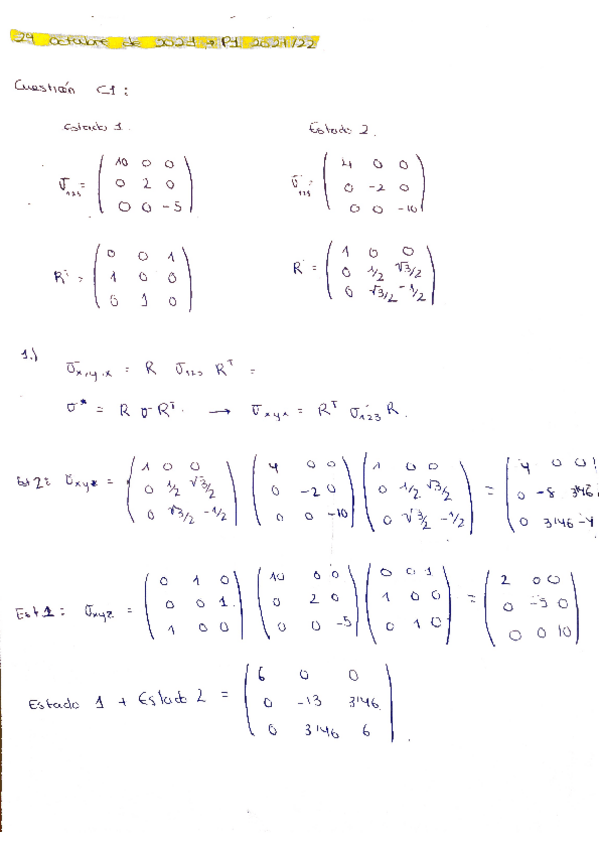 29 octubre de 2021 → P1 2021/22
Cuestión C1:
Estado 1. Estado 2.
σ₁₂₃ = (10 0 0; 0 2 0; 0 0 -5) σ₁₂₃ = (4 0 0; 0 -2 0; 0 0 -10)
R = (0 0 1; 1 0 0; 0 1 0) R = (1 0 0; 0 1/2 √3/2; 0 √3/2 -1/2)
1.) σx,y,z = R σ₁₂₃ Rᵀ =
σ* = R σ Rᵀ. → σxyz = Rᵀ σ₁₂₃ R.
Est 2: σxyz = (1 0 0; 0 1/2 √3/2; 0 √3/2 -1/2) (4 0 0; 0 -2 0; 0 0 -10) (1 0 0; 0 1/2 √3/2; 0 √3/2 -1/2) = (4 0 0; 0 -8 3'46; 0 3'46 -4
Est 1: σxyz = (0 1 0; 0 0 1; 1 0 0) (10 0 0; 0 2 0; 0 0 -5) (0 0 1; 1 0 0; 0 1 0) = (2 0 0; 0 -5 0; 0 0 10)
Estado 1 + Estado 2 = (6 0 0; 0 -13 3'46; 0 3'46 6).